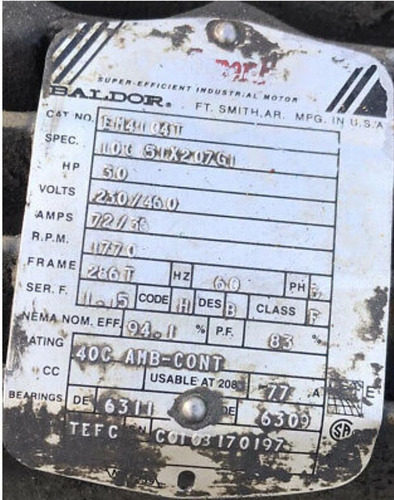 SUPER-EFFICIENT INDUSTRIAL MOTOR
BALDOR. FT. SMITH, AR. MFG. IN U.S.A
CAT NO. EM4104T
SPEC. 10C 51X207G1
HP 30
VOLTS 230/460
AMPS 72/36
R.P.M. 1770
FRAME 286T HZ 60 PH
SER. F. 1.15 CODE H DES B CLASS F
NEMA NOM. EFF. 94.1 % P.F. 83 %
RATING 40C AMB-CONT
CC USABLE AT 208 77 A
BEARINGS DE 6311 DE 6309
TEFC C0103170197
SA